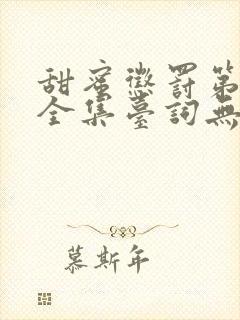 甜蜜懲罰第
全集臺詞無
慕斯年